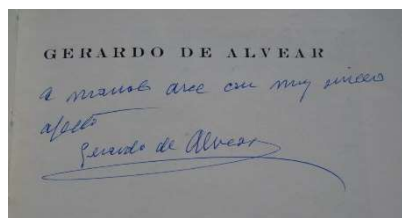 GERARDO DE ALVEAR
a manolo arce con muy sincero
afecto
Gerardo de Alvear